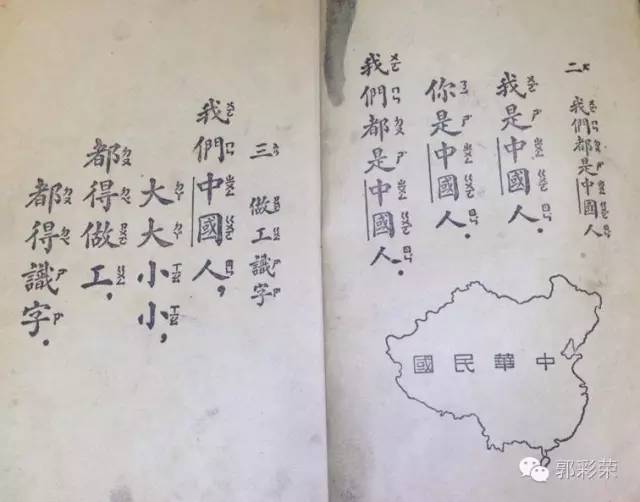 二 我們都是中國人
我是中國人．
你是中國人．
我們都是中國人．
中華民國
三 做工識字
我們中國人，
大大小小，
都得做工，
都得識字．
郭彩荣